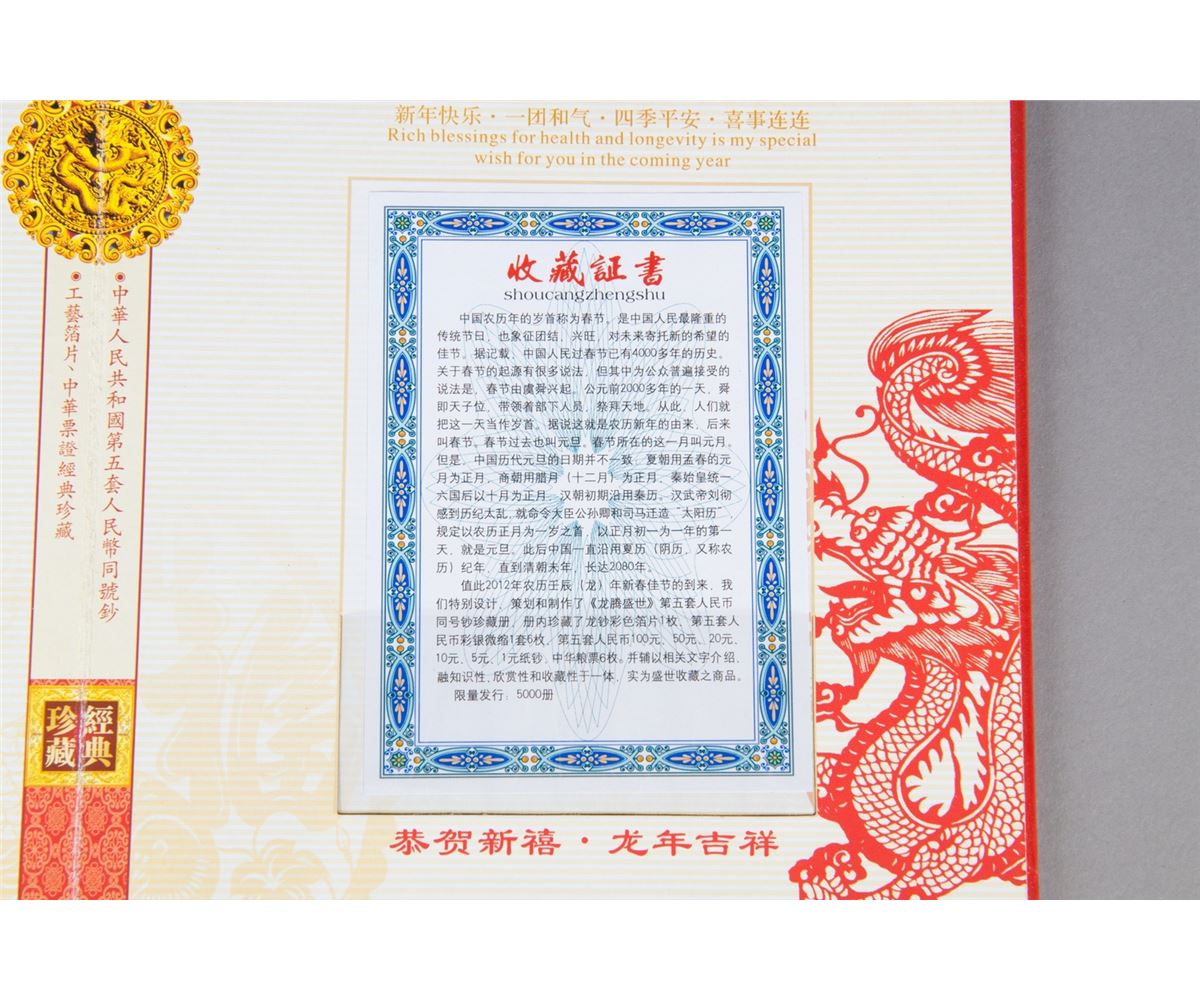 新年快乐·一团和气·四季平安·喜事连连
Rich blessings for health and longevity is my special
wish for you in the coming year
收藏証書
shoucangzhengshu
中国农历年的岁首称为春节。是中国人民最隆重的
传统节日，也象征团结、兴旺，对未来寄托新的希望的
佳节。据记载，中国人民过春节已有4000多年的历史。
关于春节的起源有很多说法，但其中为公众普遍接受的
说法是，春节由虞舜兴起。公元前2000多年的一天，舜
即天子位，带领着部下人员，祭拜天地。从此，人们就
把这一天当作岁首。据说这就是农历新年的由来，后来
叫春节。春节过去也叫元旦。春节所在的这一月叫元月。
但是，中国历代元旦的日期并不一致：夏朝用孟春的元
月为正月，商朝用腊月（十二月）为正月，秦始皇统一
六国后以十月为正月，汉朝初期沿用秦历。汉武帝刘彻
感到历纪太乱，就命令大臣公孙卿和司马迁造“太阳历”，
规定以农历正月为一岁之首，以正月初一为一年的第一
天，就是元旦。此后中国一直沿用夏历（阴历，又称农
历）纪年，直到清朝末年，长达2080年。
值此2012年农历壬辰（龙）年新春佳节的到来，我
们特别设计、策划和制作了《龙腾盛世》第五套人民币
同号钞珍藏册，册内珍藏了龙钞彩色箔片1枚，第五套人
民币彩银微缩1套6枚，第五套人民币100元、50元、20元、
10元、5元、1元纸钞，中华粮票6枚。并辅以相关文字介绍，
融知识性、欣赏性和收藏性于一体，实为盛世收藏之商品。
限量发行：5000册
恭贺新禧·龙年吉祥
中華人民共和國第五套人民幣同號鈔
工藝箔片、中華票證經典珍藏
經典
珍藏